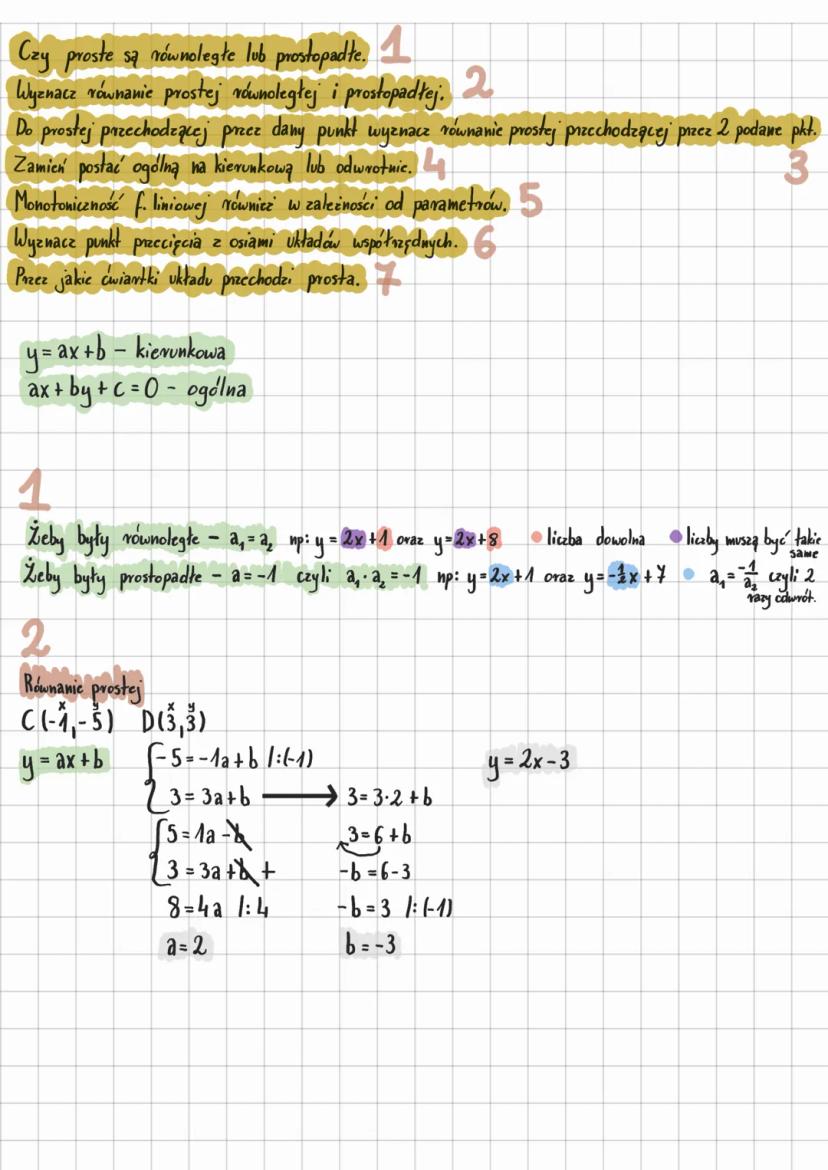 Czy proste są równoległe lub prostopadłe. 1
Wyznacz równanie prostej równoległej i prostopadłej. 2
Do prostej przechodzącej przez dany punkt wyznacz równanie prostej przechodzącej przez 2 podane pkt.
3
Zamień postać ogólną na kierunkową lub odwrotnie. 4
Monotoniczność f. liniowej również w zależności od parametrów. 5
Wyznacz punkt przecięcia z osiami układów współrzędnych. 6
Przez jakie ćwiartki układu przechodzi prosta. 7
y = ax + b – kierunkowa
ax + by + c = 0 – ogólna
1
Żeby były równoległe – a₁ = a₂ np: y = 2x + 1 oraz y = 2x + 8 liczba dowolna liczby muszą być takie same
Żeby były prostopadłe – a = -1 czyli a₁ · a₂ = -1 np: y = 2x + 1 oraz y = -1/2x + 7 a₁ = -1/a₂ czyli 2 razy odwrót.
2
Równanie prostej
x y x y
C(-1,-5) D(3,3)
y = ax + b
-5 = -1a + b /:(-1)
3 = 3a + b → 3 = 3·2 + b
y = 2x - 3
5 = 1a - b
3 = 3a + b +
8 = 4a /:4
a = 2
3 = 6 + b
-b = 6 - 3
-b = 3 /:(-1)
b = -3